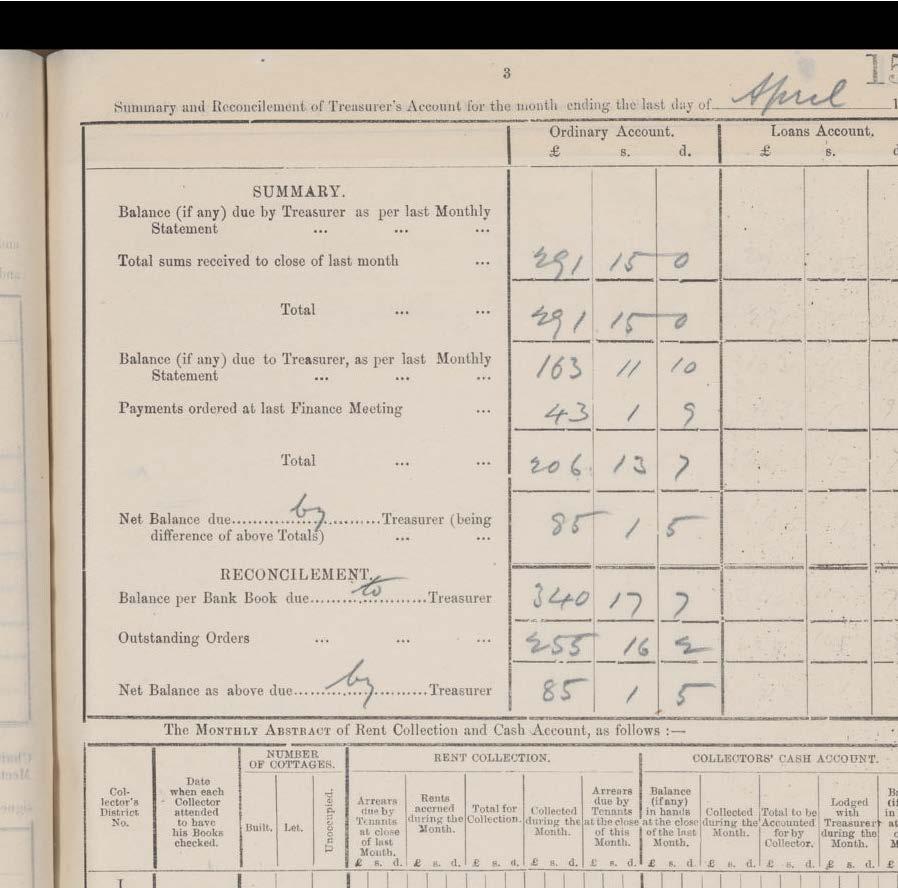 3
15
Summary and Reconcilement of Treasurer's Account for the month ending the last day of April 1
Ordinary Account. Loans Account.
£ s. d. £ s. d
SUMMARY.
Balance (if any) due by Treasurer as per last Monthly
Statement ... ... ...
Total sums received to close of last month ... 291 15 0
Total ... ... 291 15 0
Balance (if any) due to Treasurer, as per last Monthly
Statement ... ... ... 163 11 10
Payments ordered at last Finance Meeting ... 43 1 9
Total ... ... 206 13 7
Net Balance due......by......Treasurer (being
difference of above Totals) ... ... 85 1 5
RECONCILEMENT.
Balance per Bank Book due......to......Treasurer 340 17 7
Outstanding Orders ... ... ... 255 16 2
Net Balance as above due......by......Treasurer 85 1 5
The MONTHLY ABSTRACT of Rent Collection and Cash Account, as follows :—
Col-
lector's
District
No.
Date
when each
Collector
attended
to have
his Books
checked.
NUMBER
OF COTTAGES.
Built.
Let.
Unoccupied.
RENT COLLECTION.
Arrears
due by
Tenants
at close
of last
Month.
£ s. d.
Rents
accrued
during the
Month.
£ s. d.
Total for
Collection.
£ s. d.
Collected
during the
Month.
£ s. d.
Arrears
due by
Tenants
at the close
of this
Month.
£ s. d.
COLLECTORS' CASH ACCOUNT.
Balance
(if any)
in hands
at the close
of the last
Month.
£ s. d.
Collected
during the
Month.
£ s. d.
Total to be
Accounted
for by
Collector.
£ s. d.
Lodged
with
Treasurer
during the
Month.
£ s. d.
£